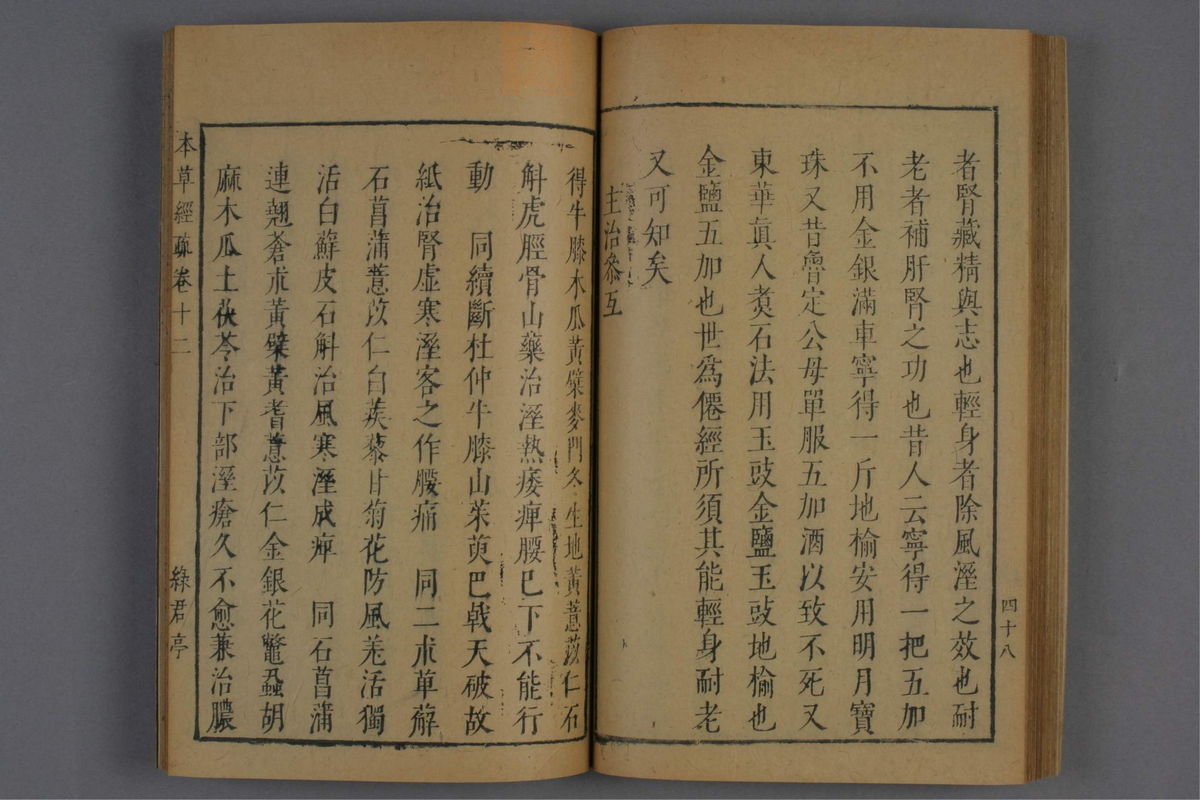 者腎藏精與志也輕身者除風溼之效也耐
老者補肝腎之功也昔人云寧得一把五加
不用金銀滿車寧得一斤地榆安用明月寶
珠又昔魯定公母單服五加酒以致不死又
東華眞人煑石法用玉豉金鹽玉豉地榆也
金鹽五加也世爲僊經所須其能輕身耐老
又可知矣
主治叅互
四十八
得牛膝木瓜黃蘗麥門冬生地黃薏苡仁石
斛虎脛骨山藥治溼熱痿痺腰已下不能行
動　同續斷杜仲牛膝山茱萸巴戟天破故
紙治腎虛寒溼客之作腰痛　同二朮萆薢
石菖蒲薏苡仁白蒺藜甘菊花防風羌活獨
活白鮮皮石斛治風寒溼成痺　同石菖蒲
連翹蒼朮黃蘗黃耆薏苡仁金銀花鼈蝨胡
麻木瓜土茯苓治下部溼瘡久不愈兼治膿
本草經疏卷十二
綠君亭